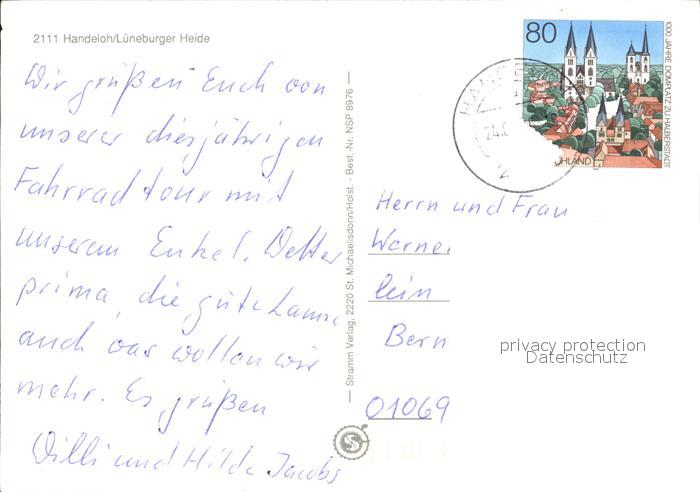 2111 Handeloh/Lüneburger Heide
Wir grüßen Euch von
unserer diesjährigen
Fahrradtour mit
unserem Enkel. Wetter
prima, die gute Laune
auch was wollen wir
mehr. Es grüßen
Willi und Hilde Jacobs
— Stramm Verlag, 2220 St. Michaelisdonn/Holst. - Best.-Nr. NSP 8976 —
80
1000 JAHRE DOMPLATZ ZU HALBERSTADT
HLAND
HAN
24.
2
Herrn und Frau
Werne
lein
Bern
01069
privacy protection
Datenschutz